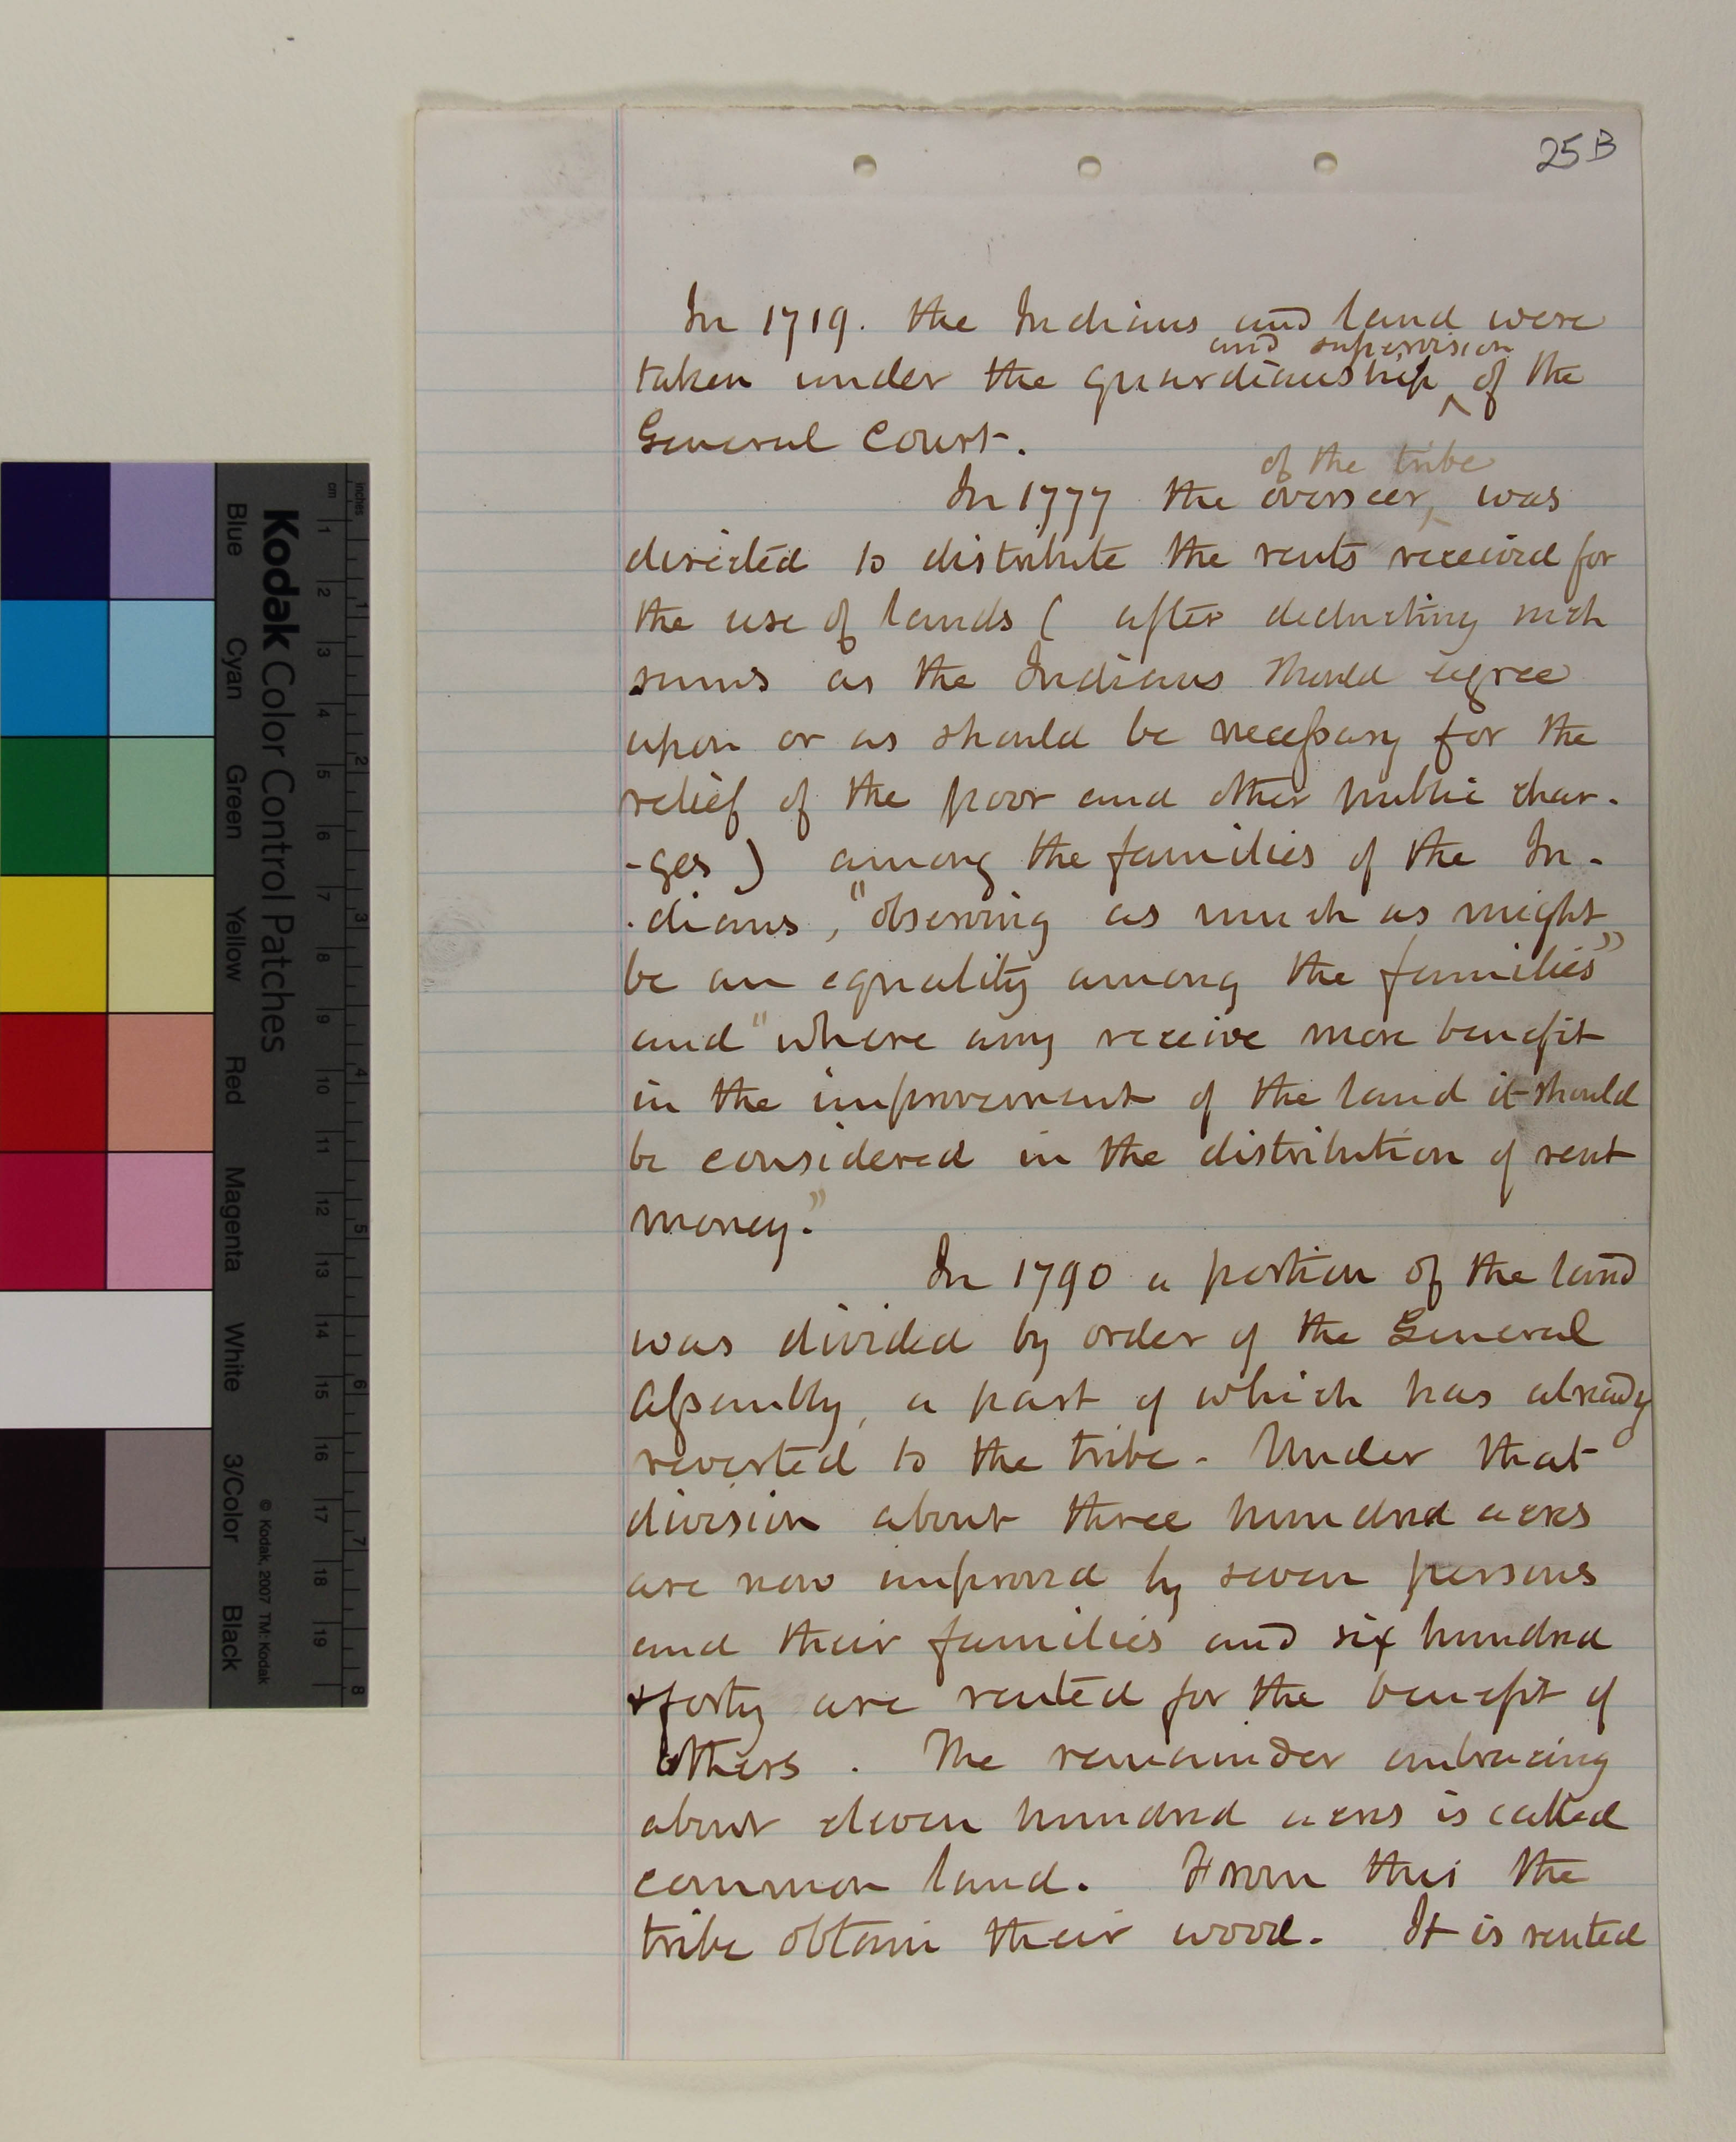 25B
In 1719. the Indians and land were
and supervision
taken under the guardianship ^ of the
General Court.
of the tribe
In 1777 the overseer, was
directed to distribute the rents received for
the use of lands ( after deducting such
sums as the Indians should agree
upon or as should be necessary for the
relief of the poor and other public char-
-ges ) among the families of the In-
-dians, "observing as much as might
be an equality among the families"
and "where any receive more benefit
in the improvement of the land it should
be considered in the distribution of rent
money."
In 1790 a portion of the land
was divided by order of the General
Assembly, a part of which has already
reverted to the tribe. Under that
division about three hundred acres
are now improved by seven persons
and their families and six hundred
+forty are rented for the benefit of
others. The remainder embracing
about eleven hundred acres is called
common land. From this the
tribe obtain their wood. It is rented
Kodak Color Control Patches
Blue Cyan Green Yellow Red Magenta White 3/Color Black
© Kodak, 2007 TM: Kodak
inches 1 2 3 4 5 6 7 8
cm 1 2 3 4 5 6 7 8 9 10 11 12 13 14 15 16 17 18 19